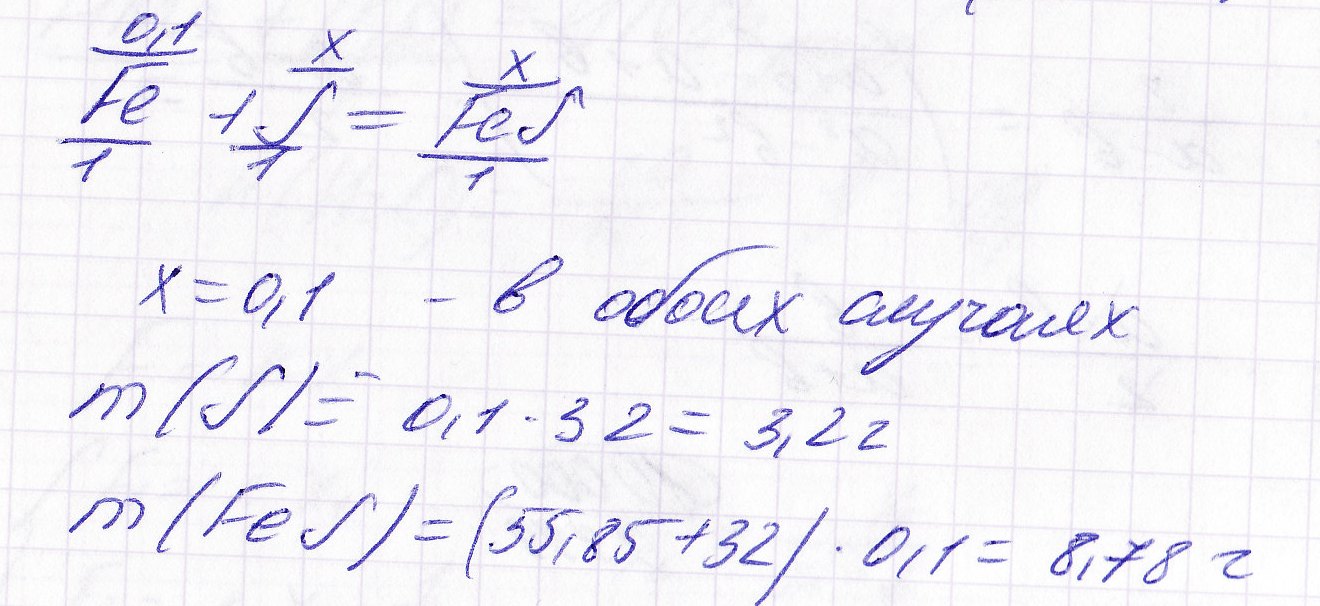 0,1 x x
Fe + S = FeS
1 1 1
x = 0,1 - в обоих случаях
m(S) = 0,1 · 32 = 3,2 г
m(FeS) = (55,85 + 32) · 0,1 = 8,78 г